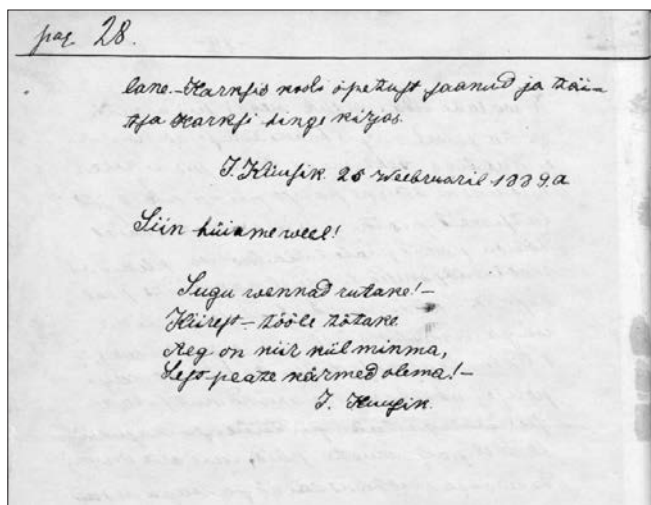 pag 28.
lane. - Karksis kooli õpetust saanud ja käi-
Karksi hinge kirjas.
J. Kuusik. 25 Weebruaril 1889.a
Siin hüiame weel!
Sugu wennad rutake! -
Kiirest - tööle tõtake
Aeg on kiir kül minma,
Sest peate kärmed olema! -
J. Kuusik.